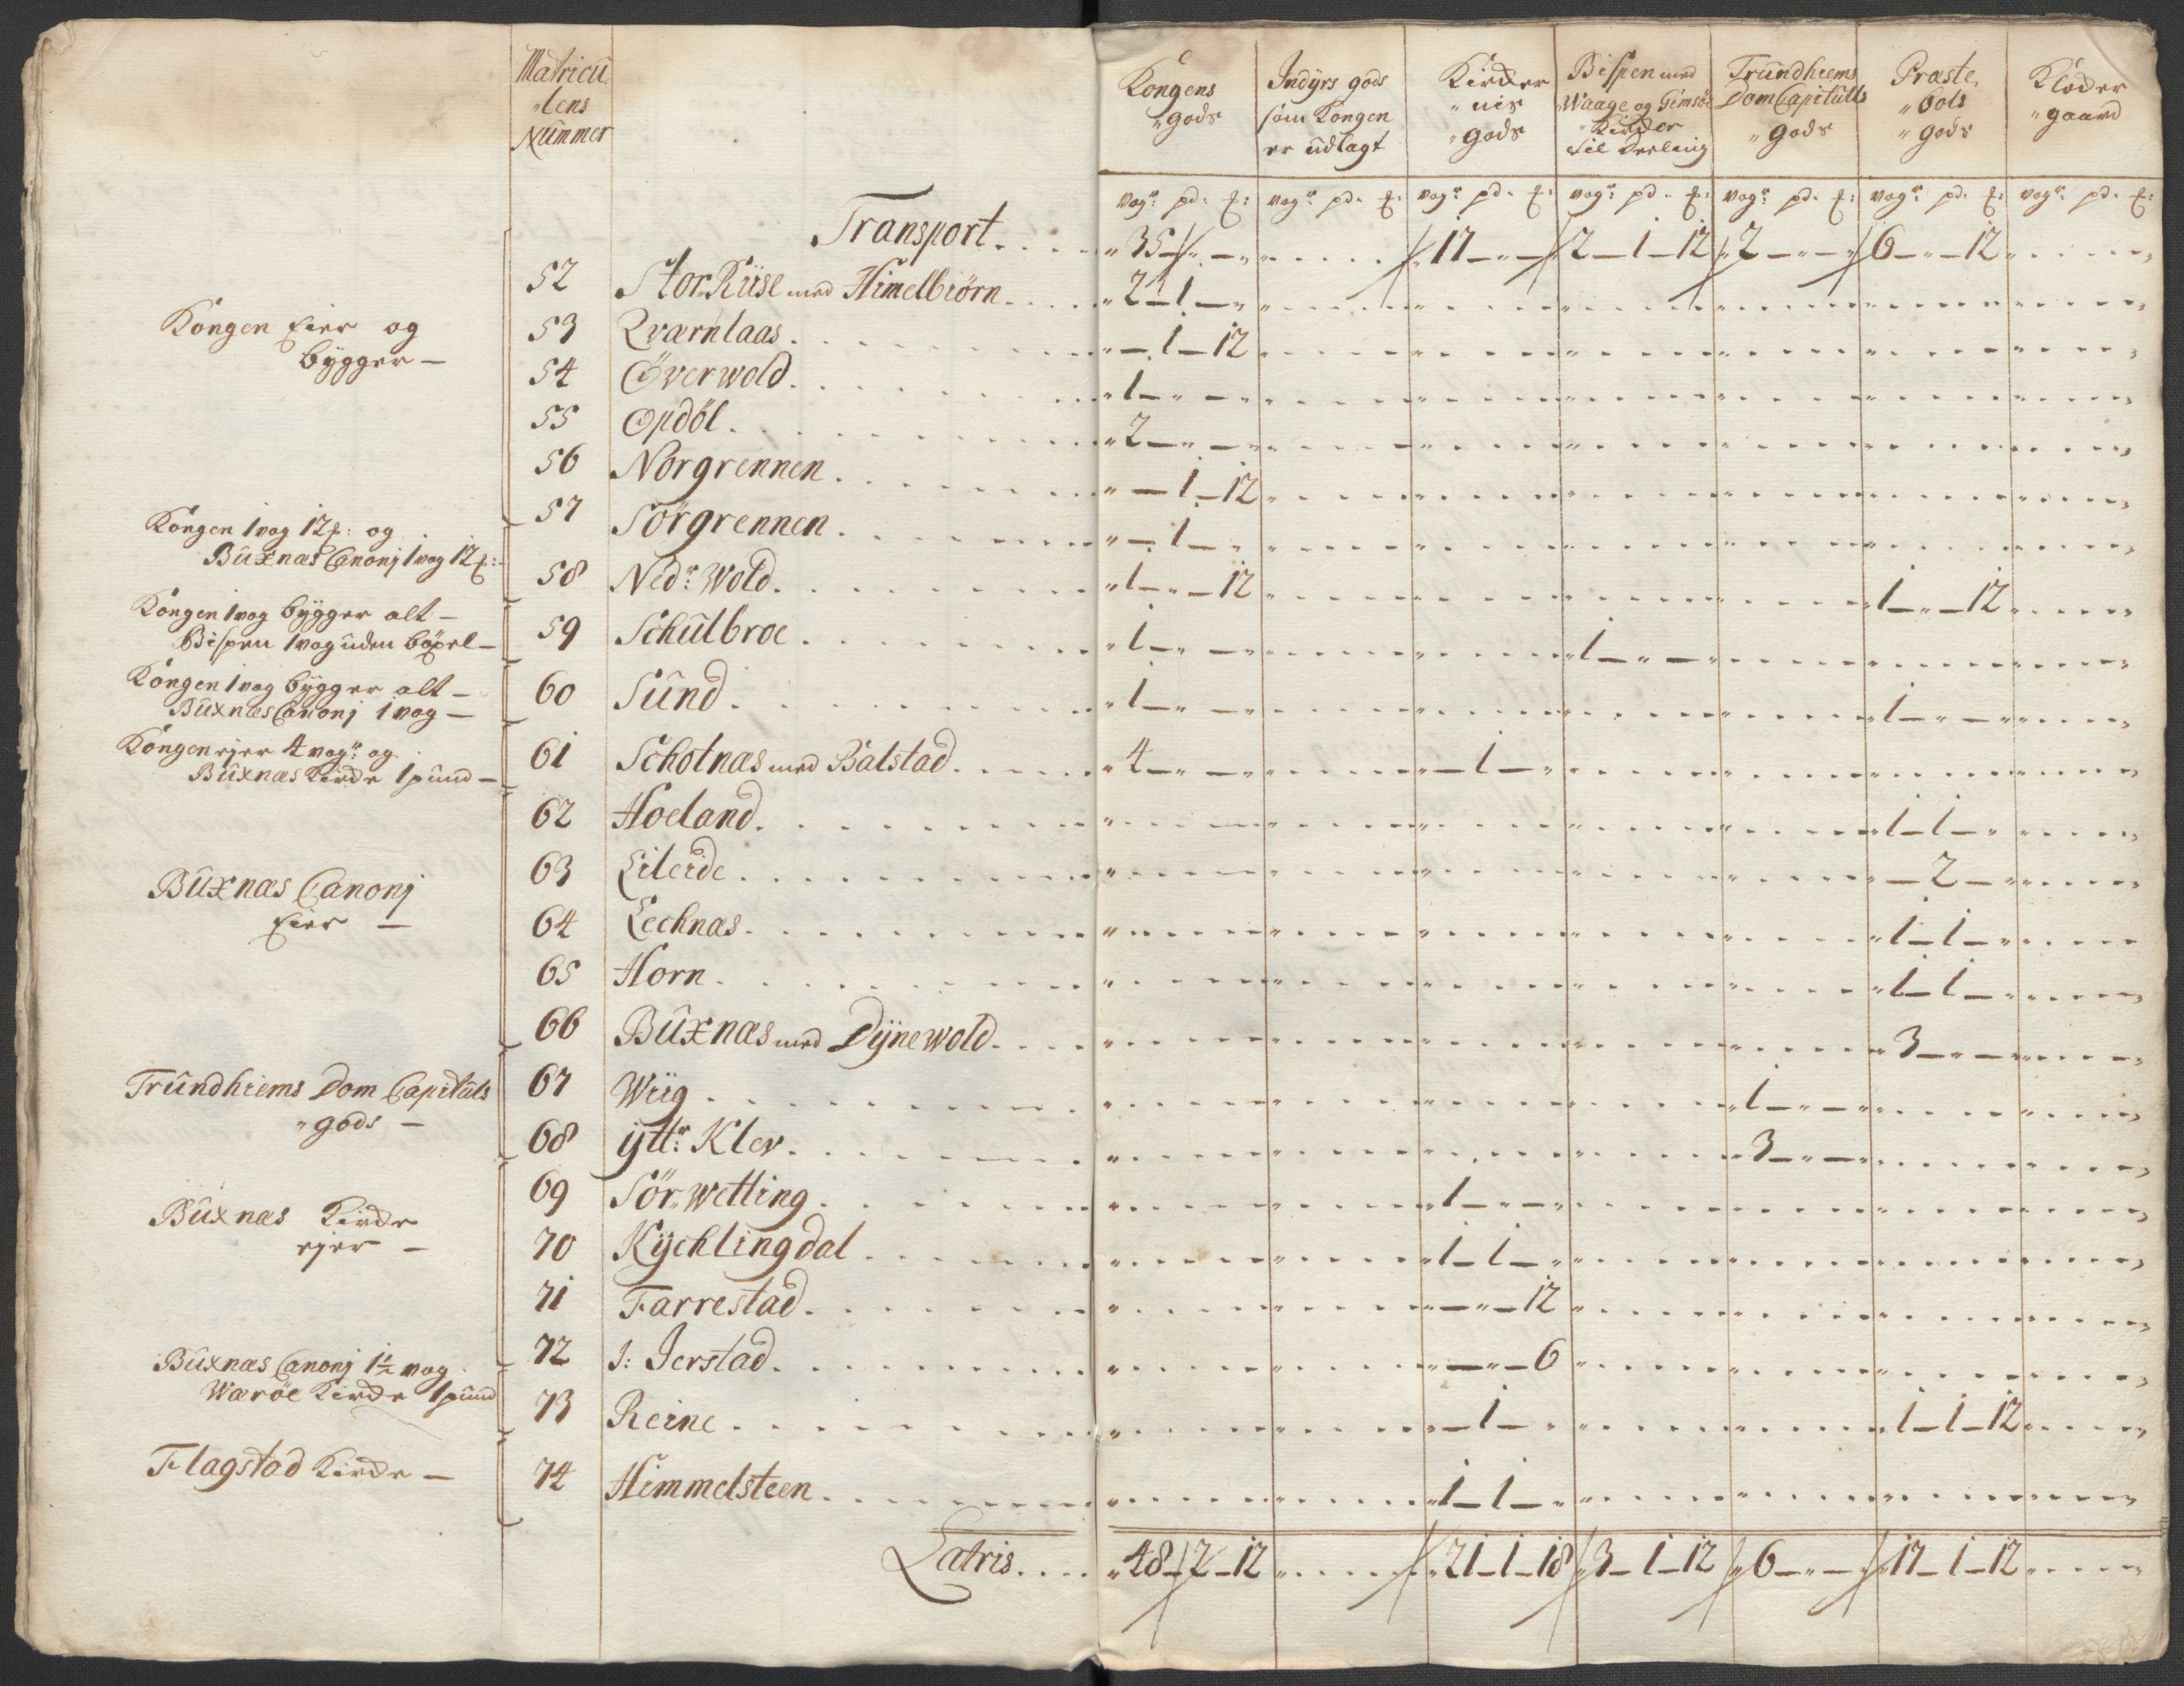 Matricu
"lens
Nummer
Kongens
"gods
Indyrs gods
som Kongen
er udlagt
Kircker
"nes
"gods
Bispen med
Waage og Gimsöe
Kircker
til deeling
Trundhiems
Dom Capituls
"gods
Præste
"bols
"gods
Klocker
"gaard
vog: pd. ℔: vog: pd. ℔: vog: pd. ℔: vog: pd. ℔: vog: pd. ℔: vog: pd. ℔: vog: pd. ℔:
Transport.... "35—"—" 17—"—" 2—1—12 "2—"—" 6—"—12
Kongen Eier og
bÿgger—
52 Stor Riise med Himelbiörn.... "2—1—"
53 Qværnlaas. "—1—12
54 Överwold. "1—"—"
55 Opdöl. "2—"—"
56 Norgrennen. "—1—12
57 Sörgrennen. "—1—"
Kongen 1 vog 12 ℔: og
Buxnæs Canonj 1 vog 12 ℔:
58 Nedr: Wold. "1—"—12 "1—"—12
Kongen 1 vog bÿgger alt—
Bispen 1 vog uden böxel—
59 Schulbroe. "1—"—" "1—"—"
Kongen 1 vog bÿgger alt—
Buxnæs Canonj 1 vog—
60 Sund. "1—"—" "1—"—"
Kongen ejer 4 vogr: og
Buxnæs Kircke 1 pund—
61 Schotnæs med Balstad. "4—"—" "—1—"
Buxnæs Canonj
Eier —
62 Hoeland. "1—1—"
63 Lileide. "—2—"
64 Lechnæs. "1—1—"
65 Horn. "1—1—"
66 Buxnæs med Dÿnewold. "3—"—"
Trundhiems Dom Capituls
"gods —
67 Wiig. "1—"—"
68 ÿttr: Klev. "3—"—"
Buxnæs Kircke
ejer —
69 Sör Wetting. "1—"—"
70 Kÿchlingdal. "1—1—"
71 Farrestad. "—"—12
72 J: Jerstad. "—"—6
Buxnæs Canonj 1½ vog
Wæröe Kircke 1 pund
73 Reine. "—1—" "1—1—12
Flagstad Kircke—
74 Himmelsteen. "1—1—"
Latris.... "48—2—12 "21—1—18 "3—1—12 "6—"—" "17—1—12